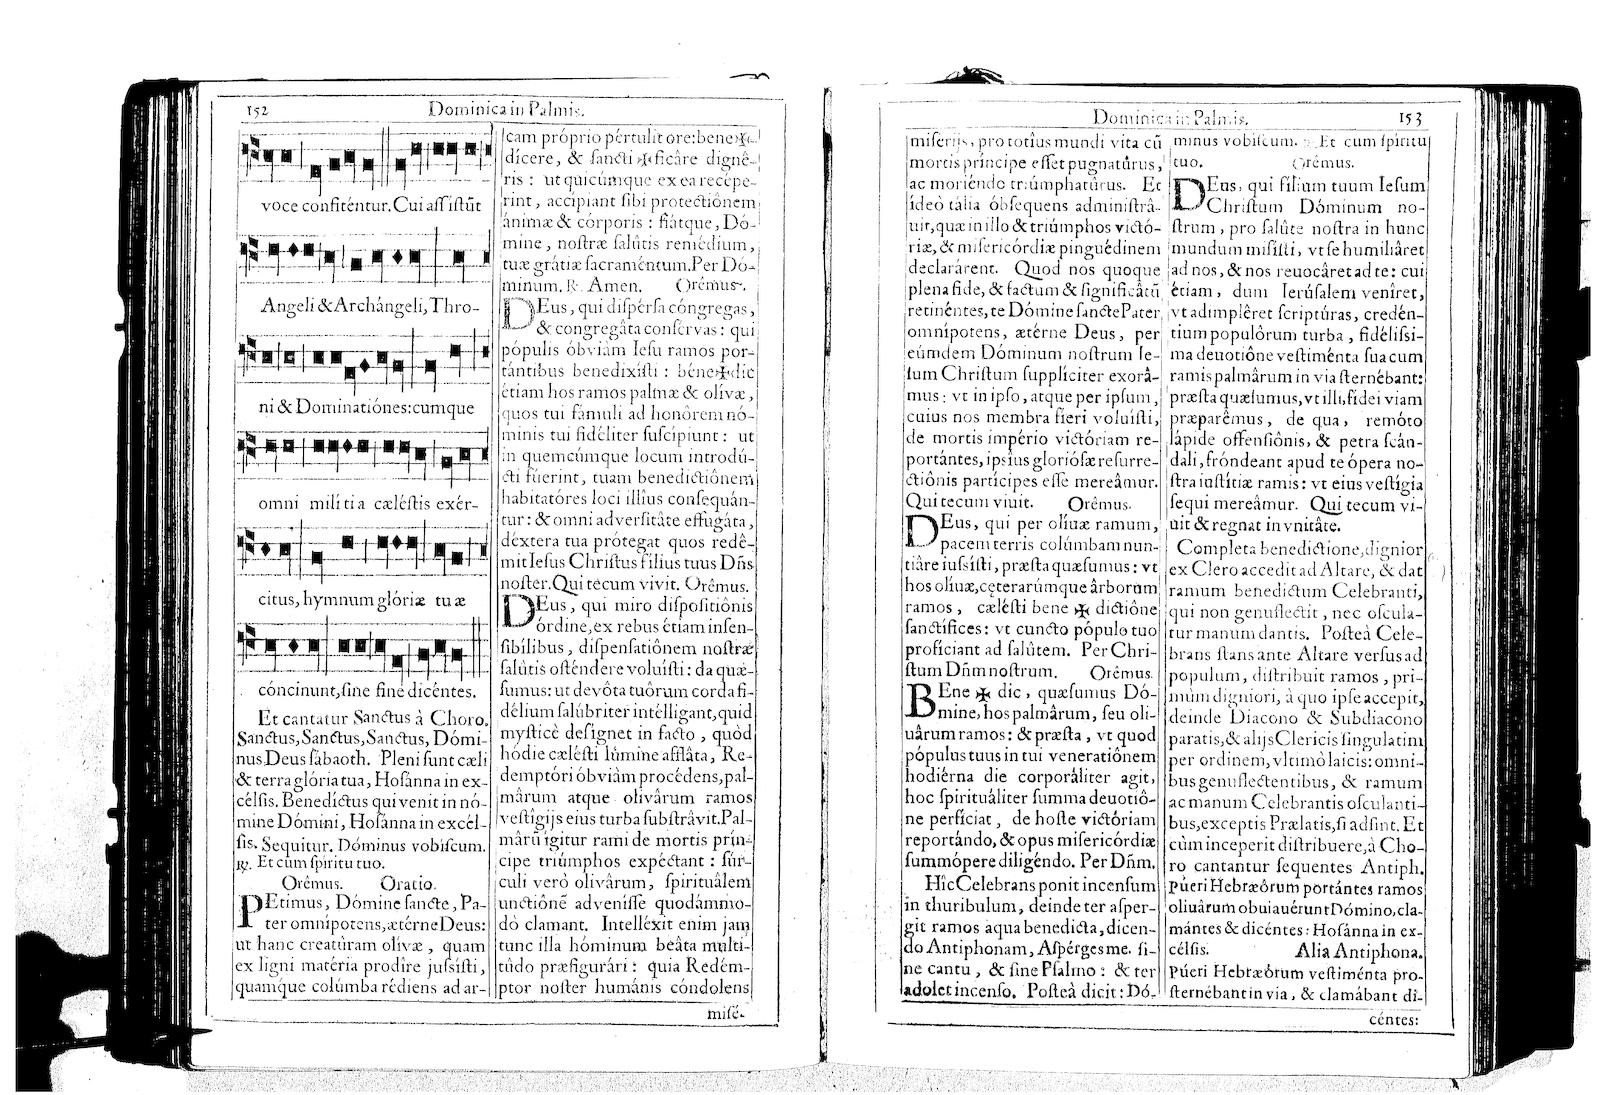 152
Dominica in Palmis.
voce confiténtur. Cui aſſiſtūt
Angeli & Archángeli, Thro-
ni & Dominatiónes: cumque
omni militia cæléſtis exér-
citus, hymnum glóriæ tuæ
cóncinunt, ſine fine dicéntes.
Et cantatur Sanctus à Choro.
Sanctus, Sanctus, Sanctus, Dómi-
nus Deus ſábaoth. Pleni ſunt cæli
& terra glória tua, Hoſánna in ex-
célſis. Benedíctus qui venit in nó-
mine Dómini, Hoſánna in excél-
ſis. Sequitur. Dóminus vobiſcum.
℟. Et cùm ſpíritu tuo.
Orêmus. Oratio.
PEtimus, Dómine ſancte, Pa-
ter omnípotens, ætérne Deus:
ut hanc creatûram olívæ, quam
ex ligni matéria prodîre juſsíſti,
quamque colúmba rédiens ad ar-
cam próprio pértulit ore: bene✠-
dícere, & ſancti✠ficâre dignê-
ris: ut quicúmque ex ea recépe-
rint, accípiant ſibi protectiônem
ánimæ & córporis: fiátque, Dó-
mine, noſtræ ſalûtis remédium,
tuæ grátiæ ſacraméntum. Per Dó-
minum. ℟. Amen. Orêmus.
DEus, qui diſpérſa cóngregas,
& congregâta conſérvas: qui
pópulis óbviàm Ieſu ramos por-
tántibus benedixíſti: béne✠dic
étiam hos ramos palmæ & olívæ,
quos tui fámuli ad honôrem nó-
minis tui fidéliter ſuſcípiunt: ut
in quemcúmque locum introdú-
cti fúerint, tuam benedictiônem
habitatóres loci illíus conſequán-
tur: & omni adverſitâte effugáta,
déxtera tua prótegat quos redê-
mit Ieſus Chriſtus fílius tuus Dn̄s
noſter. Qui tecum vivit. Orêmus.
DEus, qui miro diſpoſitiônis
órdine, ex rebus étiam inſen-
ſibílibus, diſpenſatiônem noſtræ
ſalûtis oſténdere voluíſti: da quæ-
ſumus: ut devôta tuôrum corda fi-
délium ſalúbriter intélligant, quid
myſticè deſignet in facto, quòd
hódie cæléſti lúmine afflâta, Re-
demptóri óbviàm procédens, pal-
mârum atque olivârum ramos
veſtîgijs eius turba ſubſtrâvit. Pal-
mârū ígitur rami de mortis prín-
cipe triúmphos expéctant: ſúr-
culi verò olivârum, ſpirituâlem
unctiônē adveníſſe quodámmo-
dò clamant. Intelléxit enim jam
tunc illa hóminum beâta multi-
túdo præfigurári: quia Redém-
ptor noſter humánis cóndolens
miſé-
Dominica in Palmis.
153
miſérijs, pro totíus mundi vita cū
mortis príncipe eſſet pugnatûrus,
ac moriéndo triumphatûrus. Et
ídeò tália óbſequens adminiſtrâ-
uit, quæ in illo & triúmphos victó-
riæ, & miſericórdiæ pinguédinem
declarárent. Quod nos quoque
plena fide, & factum & ſignificâtū
retinéntes, te Dómine ſancte Pater
omnípotens, ætérne Deus, per
eúmdem Dóminum noſtrum Ie-
ſum Chriſtum ſupplíciter exorâ-
mus: vt in ipſo, atque per ipſum,
cuius nos membra fíeri voluíſti,
de mortis império victóriam re-
portántes, ipsíus glorióſæ reſurre-
ctiônis partícipes eſſe mereâmur.
Qui tecum viuit. Orêmus.
DEus, qui per olíuæ ramum,
pacem terris colúmbam nun-
tiâre iuſsíſti, præſta quæſumus: vt
hos olíuæ, ceterarúmque ârborum
ramos, cæléſti bene✠dictiône
ſanctífices: vt cuncto pópulo tuo
profíciant ad ſalûtem. Per Chri-
ſtum Dn̄m noſtrum. Orêmus.
BEne✠dic, quæſumus Dó-
mine, hos palmârum, ſeu oli-
uârum ramos: & præſta, vt quod
pópulus tuus in tui veneratiônem
hodiérna die corporáliter agit,
hoc ſpirituáliter ſumma deuotiô-
ne perfíciat, de hoſte victóriam
reportándo, & opus miſericórdiæ
ſummópere diligéndo. Per Dn̄m.
Hîc Celebrans ponit incenſum
in thuribulum, deinde ter aſper-
git ramos aqua benedicta, dicen-
do Antiphonam, Aſpérges me. ſi-
ne cantu, & ſine Pſalmo: & ter
adolet incenſo. Poſteà dicit: Dó-
minus vobíſcum. Et cum ſpíritu
tuo. Orêmus.
DEus, qui fílium tuum Ieſum
Chriſtum Dóminum no-
ſtrum, pro ſalûte noſtra in hunc
mundum miſíſti, vt ſe humiliâret
ad nos, & nos reuocâret ad te: cui
étiam, dum Ierúſalem venîret,
vt adimplêret ſcriptúras, credén-
tium populôrum turba, fidéliſsi-
ma deuotiône veſtiménta ſua cum
ramis palmârum in via ſternébant:
præſta quæſumus, vt illi, fidei viam
præparêmus, de qua, remóto
lápide offenſiônis, & petra ſcân-
dali, fróndeant apud te ópera no-
ſtra iuſtítiæ ramis: vt eius veſtígia
ſequi mereâmur. Qui tecum vi-
uit & regnat in vnitâte.
Completa benedictione, dignior
ex Clero accedit ad Altare, & dat
ramum benedictum Celebranti,
qui non genuflectit, nec oſcula-
tur manum dantis. Poſteà Cele-
brans ſtans ante Altare verſus ad
populum, diſtribuit ramos, pri-
mùm digniori, à quo ipſe accepit,
deinde Diacono & Subdiacono
paratis, & alijs Clericis ſingulatim
per ordinem, vltimò laicis: omni-
bus genuflectentibus, & ramum
ac manum Celebrantis oſculanti-
bus, exceptis Prælatis, ſi adſint. Et
cùm inceperit diſtribuere, à Cho-
ro cantantur ſequentes Antiph.
Púeri Hebræôrum portántes ramos
oliuârum obuiauérunt Dómino, cla-
mántes & dicéntes: Hoſánna in ex-
célſis. Alia Antiphona.
Púeri Hebræôrum veſtiménta pro-
ſternébant in via, & clamábant di-
céntes: